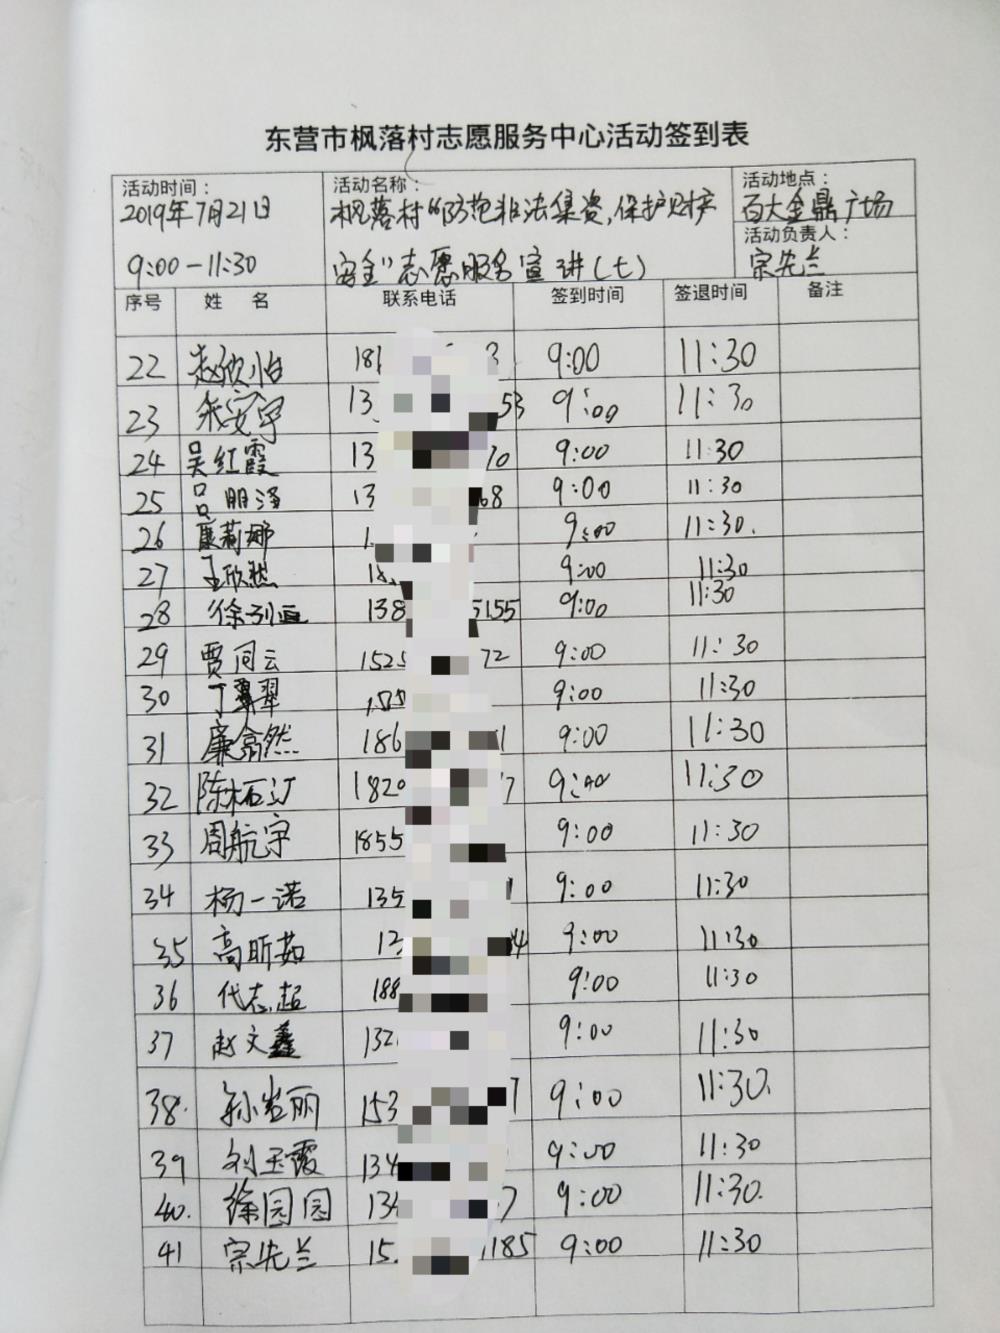 东营市枫落村志愿服务中心活动签到表
活动时间：
2019年7月21日
9:00-11:30
活动名称：
枫落村“防范非法集资，保护财产
安全”志愿服务宣讲（七）
活动地点：
百大金鼎广场
活动负责人：
宗先兰
序号 姓名 联系电话 签到时间 签退时间 备注
22 赵欣怡 9:00 11:30
23 朱安宇 13 53 9:00 11:30
24 吴红霞 13 70 9:00 11:30
25 吕明泽 13 68 9:00 11:30
26 康莉娜 9:00 11:30.
27 王欣然 9:00 11:30
28 徐 138 5155 9:00 11:30
29 贾同云 1525 72 9:00 11:30
30 丁翠 9:00 11:30
31 廉 然 186 1 9:00 11:30
32 陈柘汀 1820 7 9:00 11:30
33 周航宇 1855 9:00 11:30
34 杨一诺 135 9:00 11:30
35 高昕茹 13 4 9:00 11:30
36 代志超 188 9:00 11:30
37 赵文鑫 132 9:00 11:30
38. 孙 丽 153 7 9:00 11:30.
39 刘玉霞 134 9:00 11:30
40. 徐园园 134 7 9:00 11:30.
41 宗先兰 15 1185 9:00 11:30